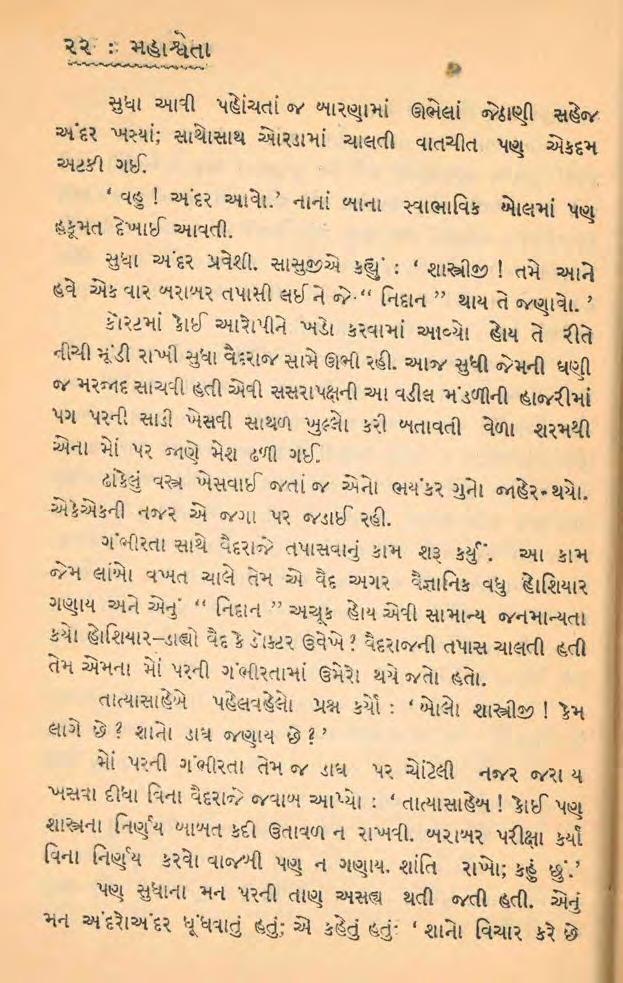 ૨૨ : મહાશ્વેતા
સુધા આવી પહોંચતાં જ બારણામાં ઊભેલાં જેઠાણી સહેજ
અંદર ખસ્યાં; સાથોસાથ ઓરડામાં ચાલતી વાતચીત પણ એકદમ
અટકી ગઈ.
‘ વહુ ! અંદર આવો.’ નાનાં બાના સ્વાભાવિક બોલમાં પણ
હકૂમત દેખાઈ આવતી.
સુધા અંદર પ્રવેશી. સાસુજીએ કહ્યું : ‘ શાસ્ત્રીજી ! તમે આને
હવે એક વાર બરાબર તપાસી લઈ ને જે “ નિદાન ” થાય તે જણાવો. ’
કોરટમાં કોઈ આરોપીને ખડો કરવામાં આવ્યો હોય તે રીતે
નીચી મૂંડી રાખી સુધા વૈદરાજ સામે ઊભી રહી. આજ સુધી જેમની ઘણી
જ મરજાદ સાચવી હતી એવી સસરાપક્ષની આ વડીલ મંડળીની હાજરીમાં
પગ પરની સાડી ખેસવી સાથળ ખુલ્લો કરી બતાવતી વેળા શરમથી
એના મોં પર જાણે મેશ ઢળી ગઈ.
ઢાંકેલું વસ્ત્ર ખેસવાઈ જતાં જ એનો ભયંકર ગુનો જાહેર થયો.
એકેએકની નજર એ જગા પર જડાઈ રહી.
ગંભીરતા સાથે વૈદરાજે તપાસવાનું કામ શરૂ કર્યું. આ કામ
જેમ લાંબો વખત ચાલે તેમ એ વૈદ અગર વૈજ્ઞાનિક વધુ હોશિયાર
ગણાય અને એનું “ નિદાન ” અચૂક હોય એવી સામાન્ય જનમાન્યતા
કયો હોશિયાર–ડાહ્યો વૈદ કે ડૉક્ટર ઉવેખે ? વૈદરાજની તપાસ ચાલતી હતી
તેમ એમના મોં પરની ગંભીરતામાં ઉમેરો થયે જતો હતો.
તાત્યાસાહેબે પહેલવહેલો પ્રશ્ન કર્યો : ‘ બોલો શાસ્ત્રીજી ! કેમ
લાગે છે ? શાનો ડાઘ જણાય છે ? ’
મોં પરની ગંભીરતા તેમ જ ડાઘ પર ચોંટેલી નજર જરા ય
ખસવા દીધા વિના વૈદરાજે જવાબ આપ્યો : ‘ તાત્યાસાહેબ ! કોઈ પણ
શાસ્ત્રના નિર્ણય બાબત કદી ઉતાવળ ન રાખવી. બરાબર પરીક્ષા કર્યા
વિના નિર્ણય કરવો વાજબી પણ ન ગણાય. શાંતિ રાખો; કહું છું.’
પણ સુધાના મન પરની તાણ અસહ્ય થતી જતી હતી. એનું
મન અંદરોઅંદર ધૂંધવાતું હતું; એ કહેતું હતું ‘ શાનો વિચાર કરે છે